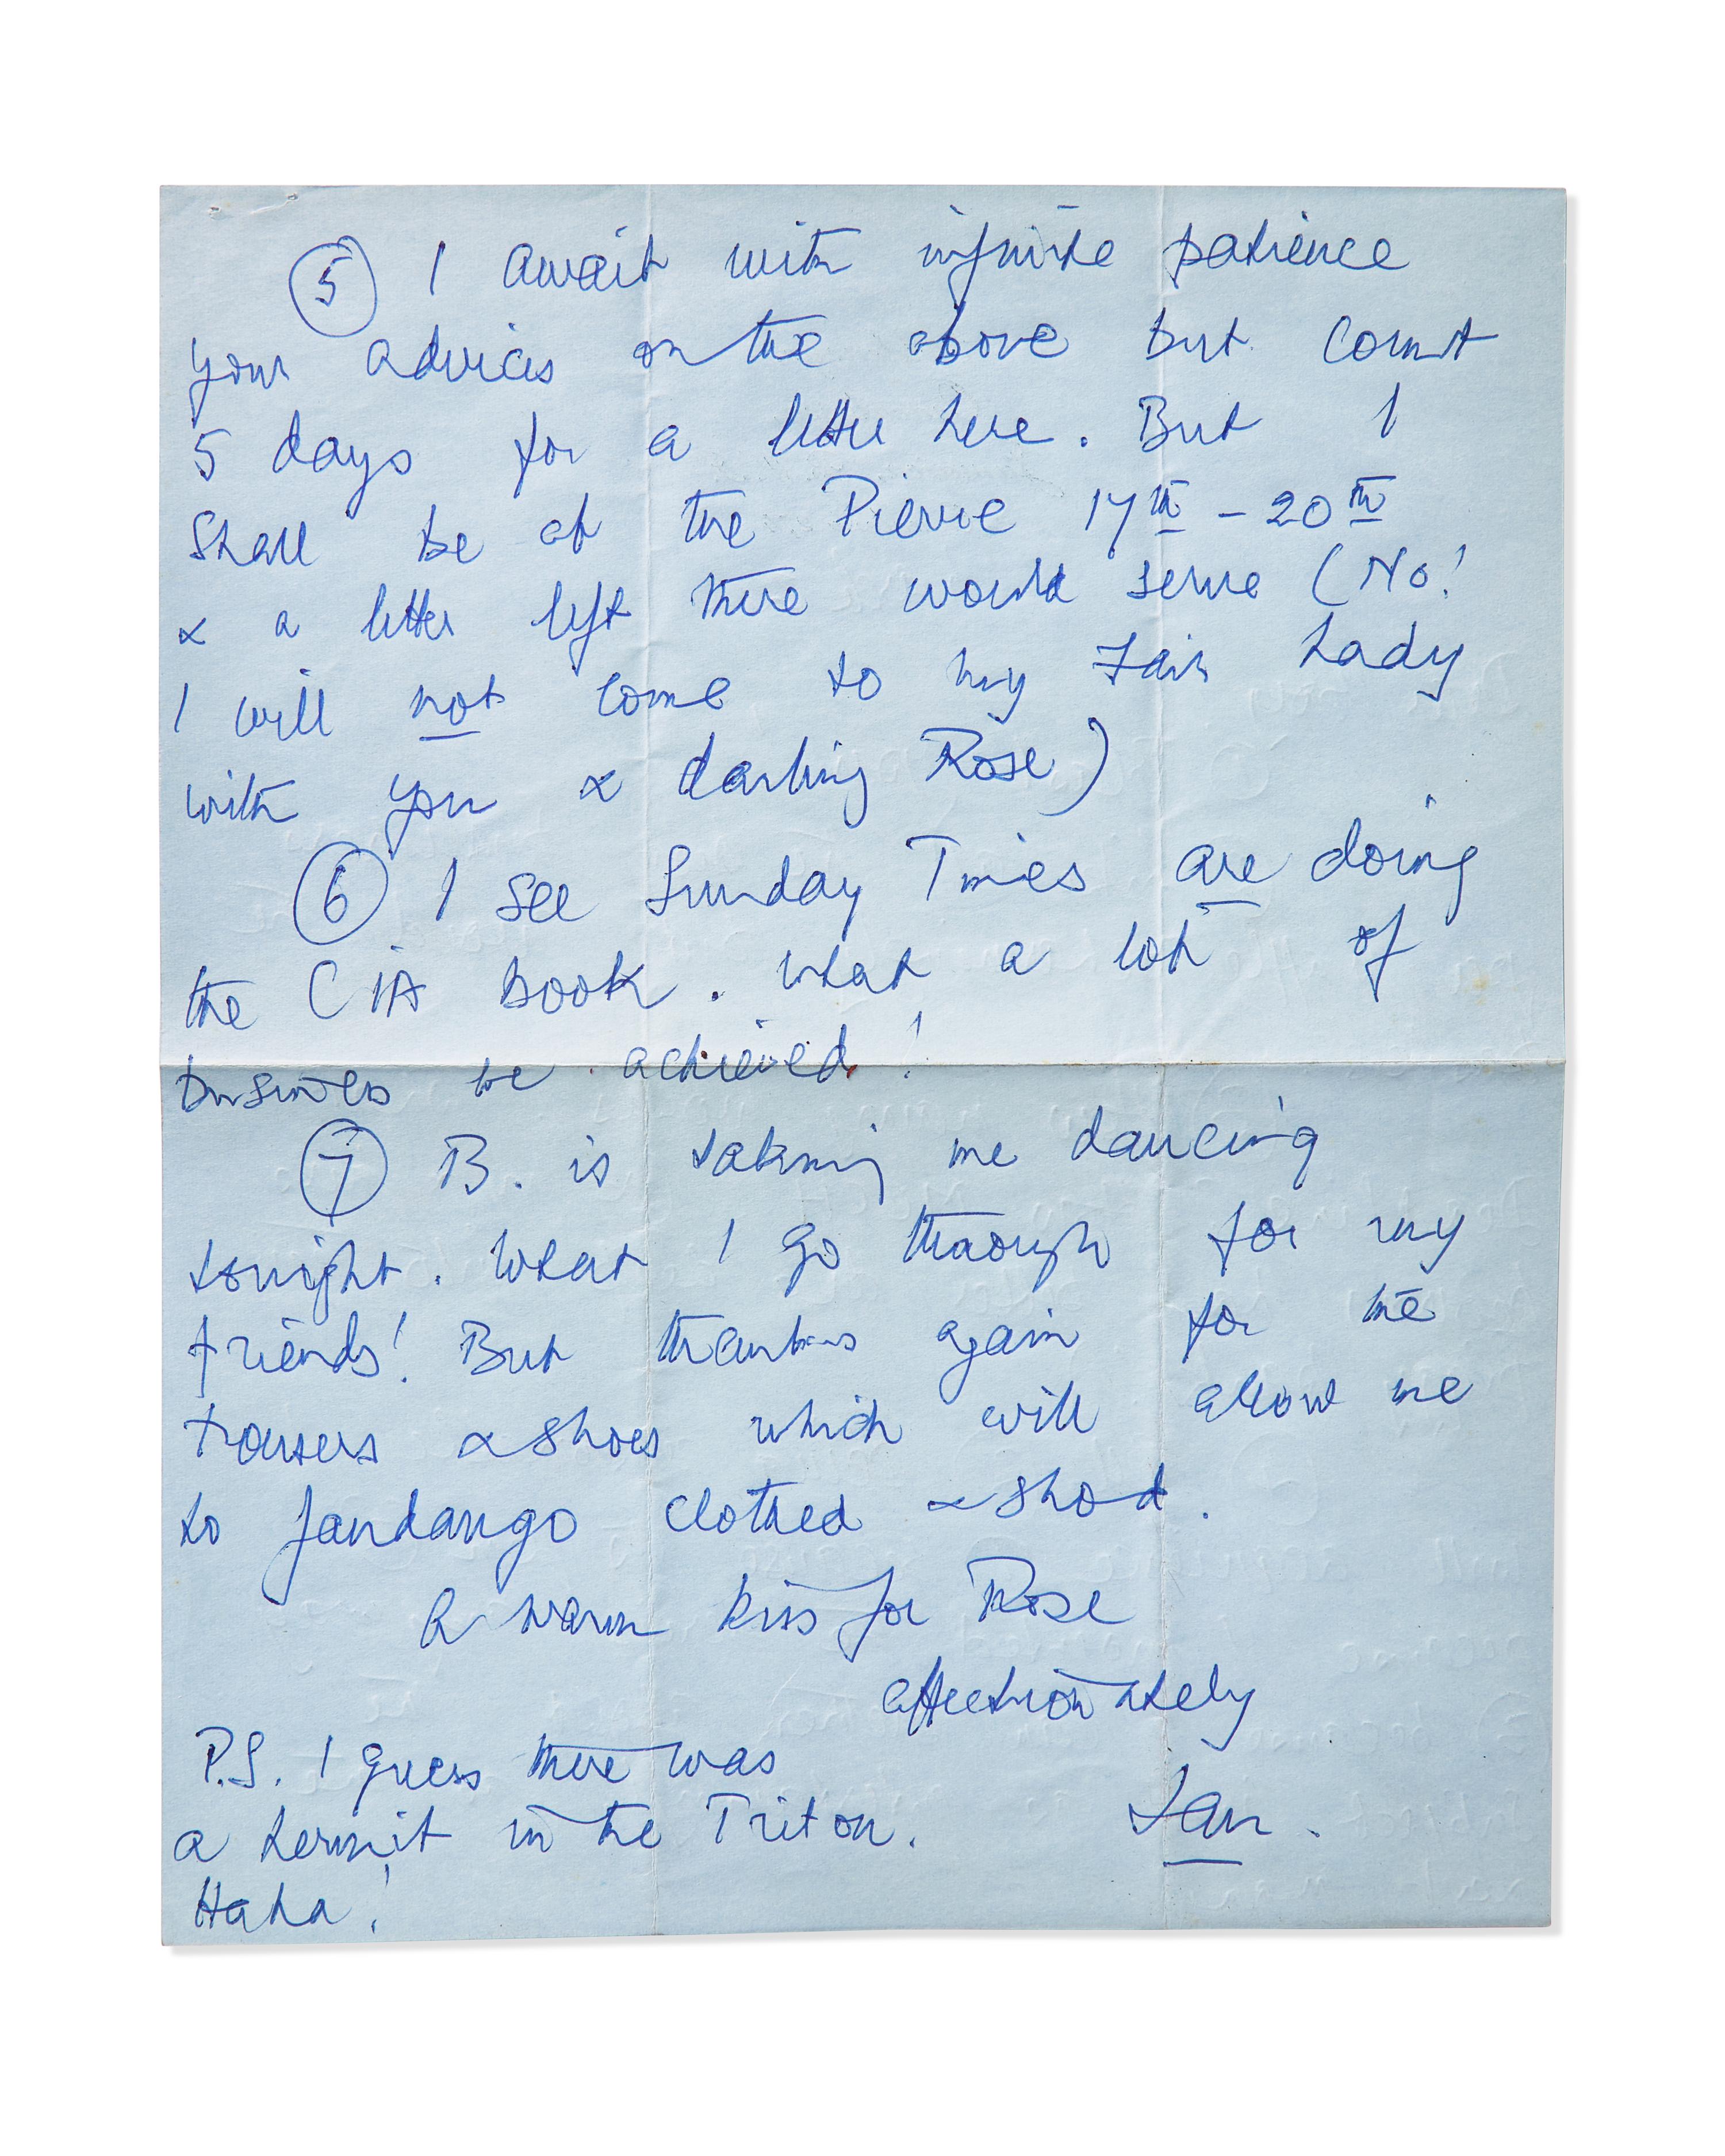 ⑤ I await with infinite patience
your advices on the above but count
5 days for a letter here. But I
shall be at the Pierre 17th - 20th
& a letter left there would serve (No!
I will not come to My Fair Lady
with you & darling Rose)
⑥ I see Sunday Times are doing
the CIA book. What a lot of
business he achieved!
⑦ B. is taking me dancing
tonight. What I go through for my
friends! But thanks again for the
trousers & shoes which will allow me
to fandango clothed & shod.
A warm kiss for Rose
affectionately
P.S. I guess there was
Ian.
a hermit in the Triton.
Haha!